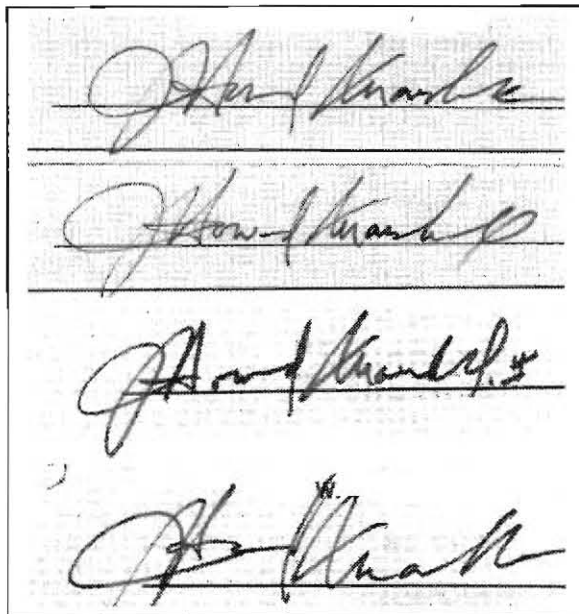 J Howard Marshall
J Howard Marshall
J Howard Marshall, II
J Howard Marshall